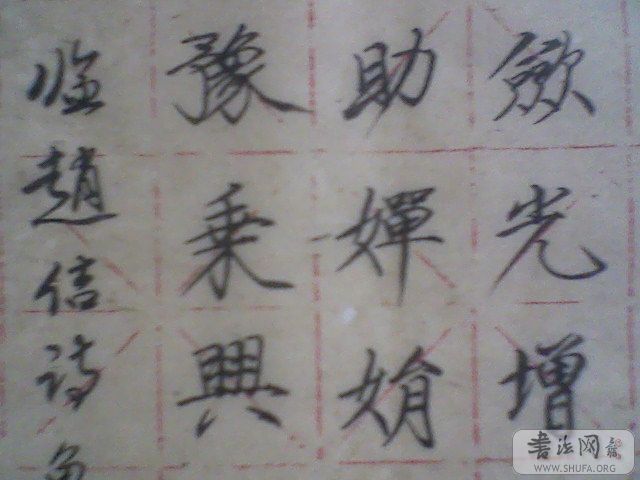 歛光增
助嬋娟
豫乘興
临趙信詩
書法网
WWW.SHUFA.ORG